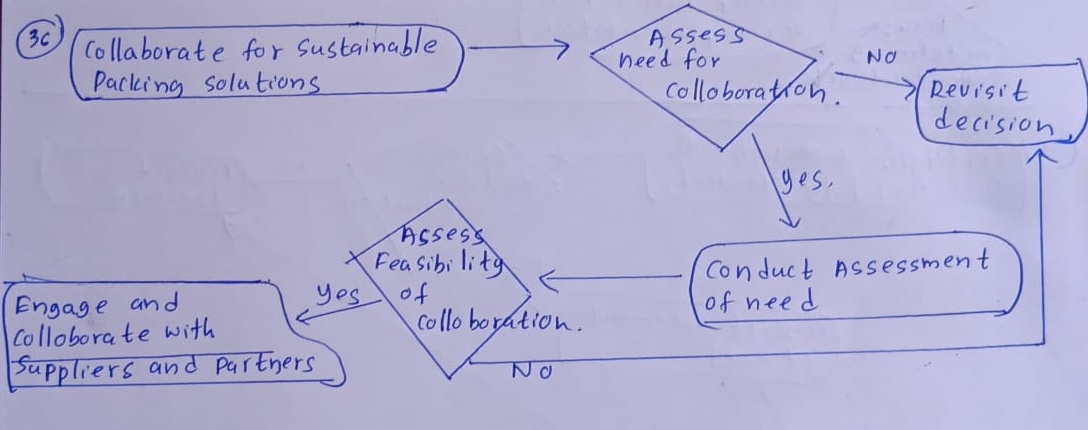 3c
Collaborate for Sustainable
Packing solutions
Assess
need for
colloboration.
NO
Revisit
decision
yes.
Conduct Assessment
of need
Assess
Feasibility
of
colloboration.
yes
Engage and
colloborate with
Suppliers and partners
NO